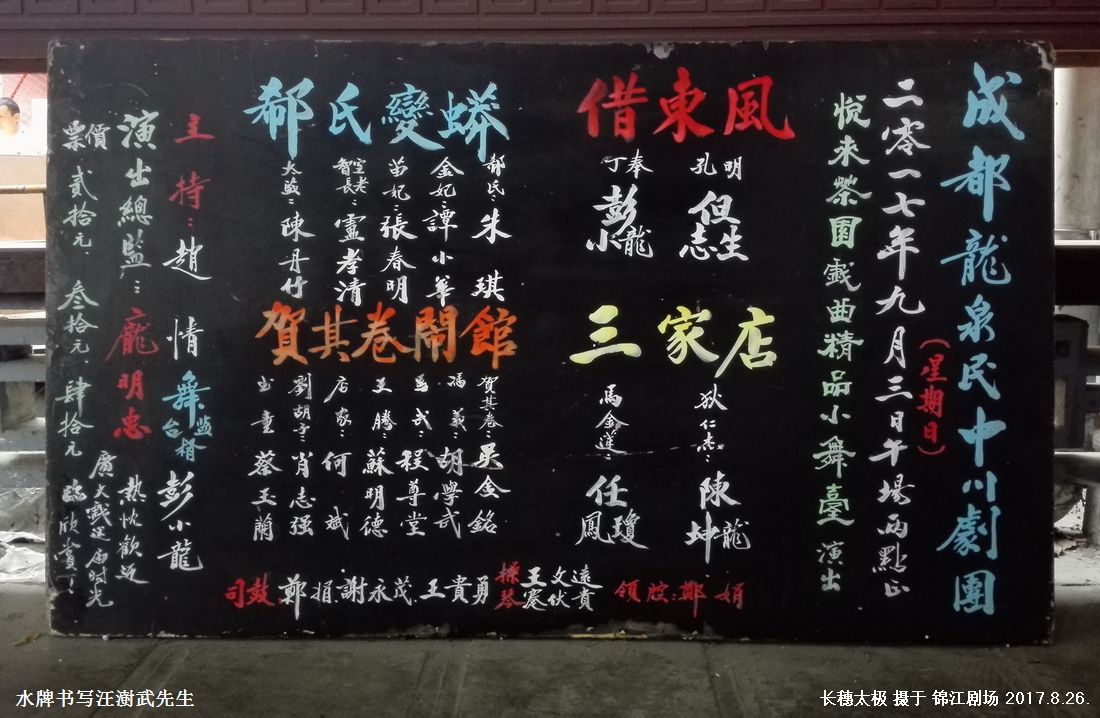 成都龍泉民中川劇團
二零一七年九月三日午場兩點正
(星期日)
悅来茶園戲曲精品小舞臺演出
借東風
孔明 但志生
丁奉 彭小龍
三家店
狄仁杰:陳坤龍
馬金蓮:任鳳瓊
郝氏變蟒
郝氏:朱琪
金妃:譚小華
苗妃:張春明
智空長老:靈孝清
太監:陳丹竹
賀其卷鬧館
賀其卷:吴金銘
馮義:胡學武
程尊堂
王騰:蘇明德
店家:何斌
劉胡子:肖志强
書童 蔡玉蘭
領腔:鄭娟
操琴 王文遠 王蹇伏貴
司鼓:鄭娟.謝永茂.王貴勇
主持:趙情
舞台監督 彭小龍
演出總監:龐明忠
熱忱歡迎
廣大戲迷
臨欣賞!
票價 貳拾元、叁拾元、肆拾元
水牌书写汪澍武先生
长穗太极 摄于 锦江剧场 2017.8.26.